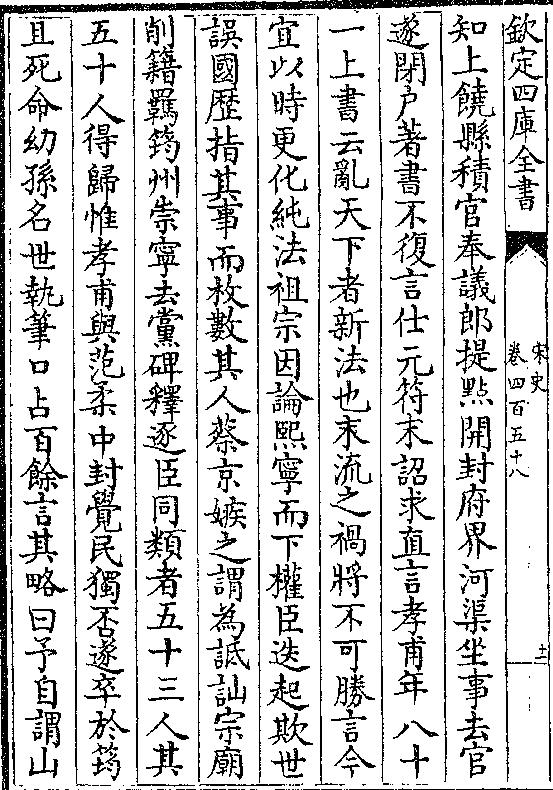 欽定四庫全書
宋史
卷四百五十八
十二
知上饒縣積官奉議郎提㸃開封府界河渠坐事去官
遂閉户著書不復言仕元符末詔求直言孝甫年八十
一上書云亂天下者新法也末流之禍將不可勝言今
宜以時更化純法祖宗因論熙寧而下權臣迭起欺世
誤國歴指其事而枚數其人蔡京嫉之謂為詆訕宗廟
削籍羈筠州崇寧去黨碑釋逐臣同類者五十三人其
五十人得歸惟孝甫與范柔中封覺民獨否遂卒於筠
且死命幼孫名世執筆口占百餘言其略曰予自謂山